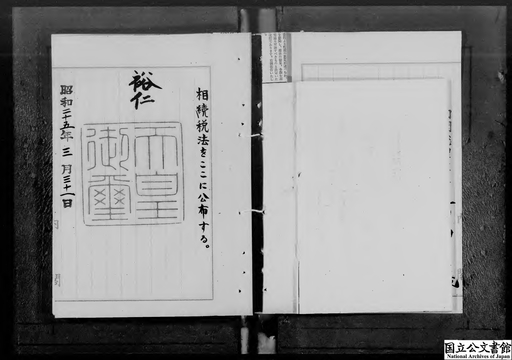 相続税法をここに公布する。
裕仁
天皇
御璽
昭和二十五年三月三十一日
国立公文書館
National Archives of Japan